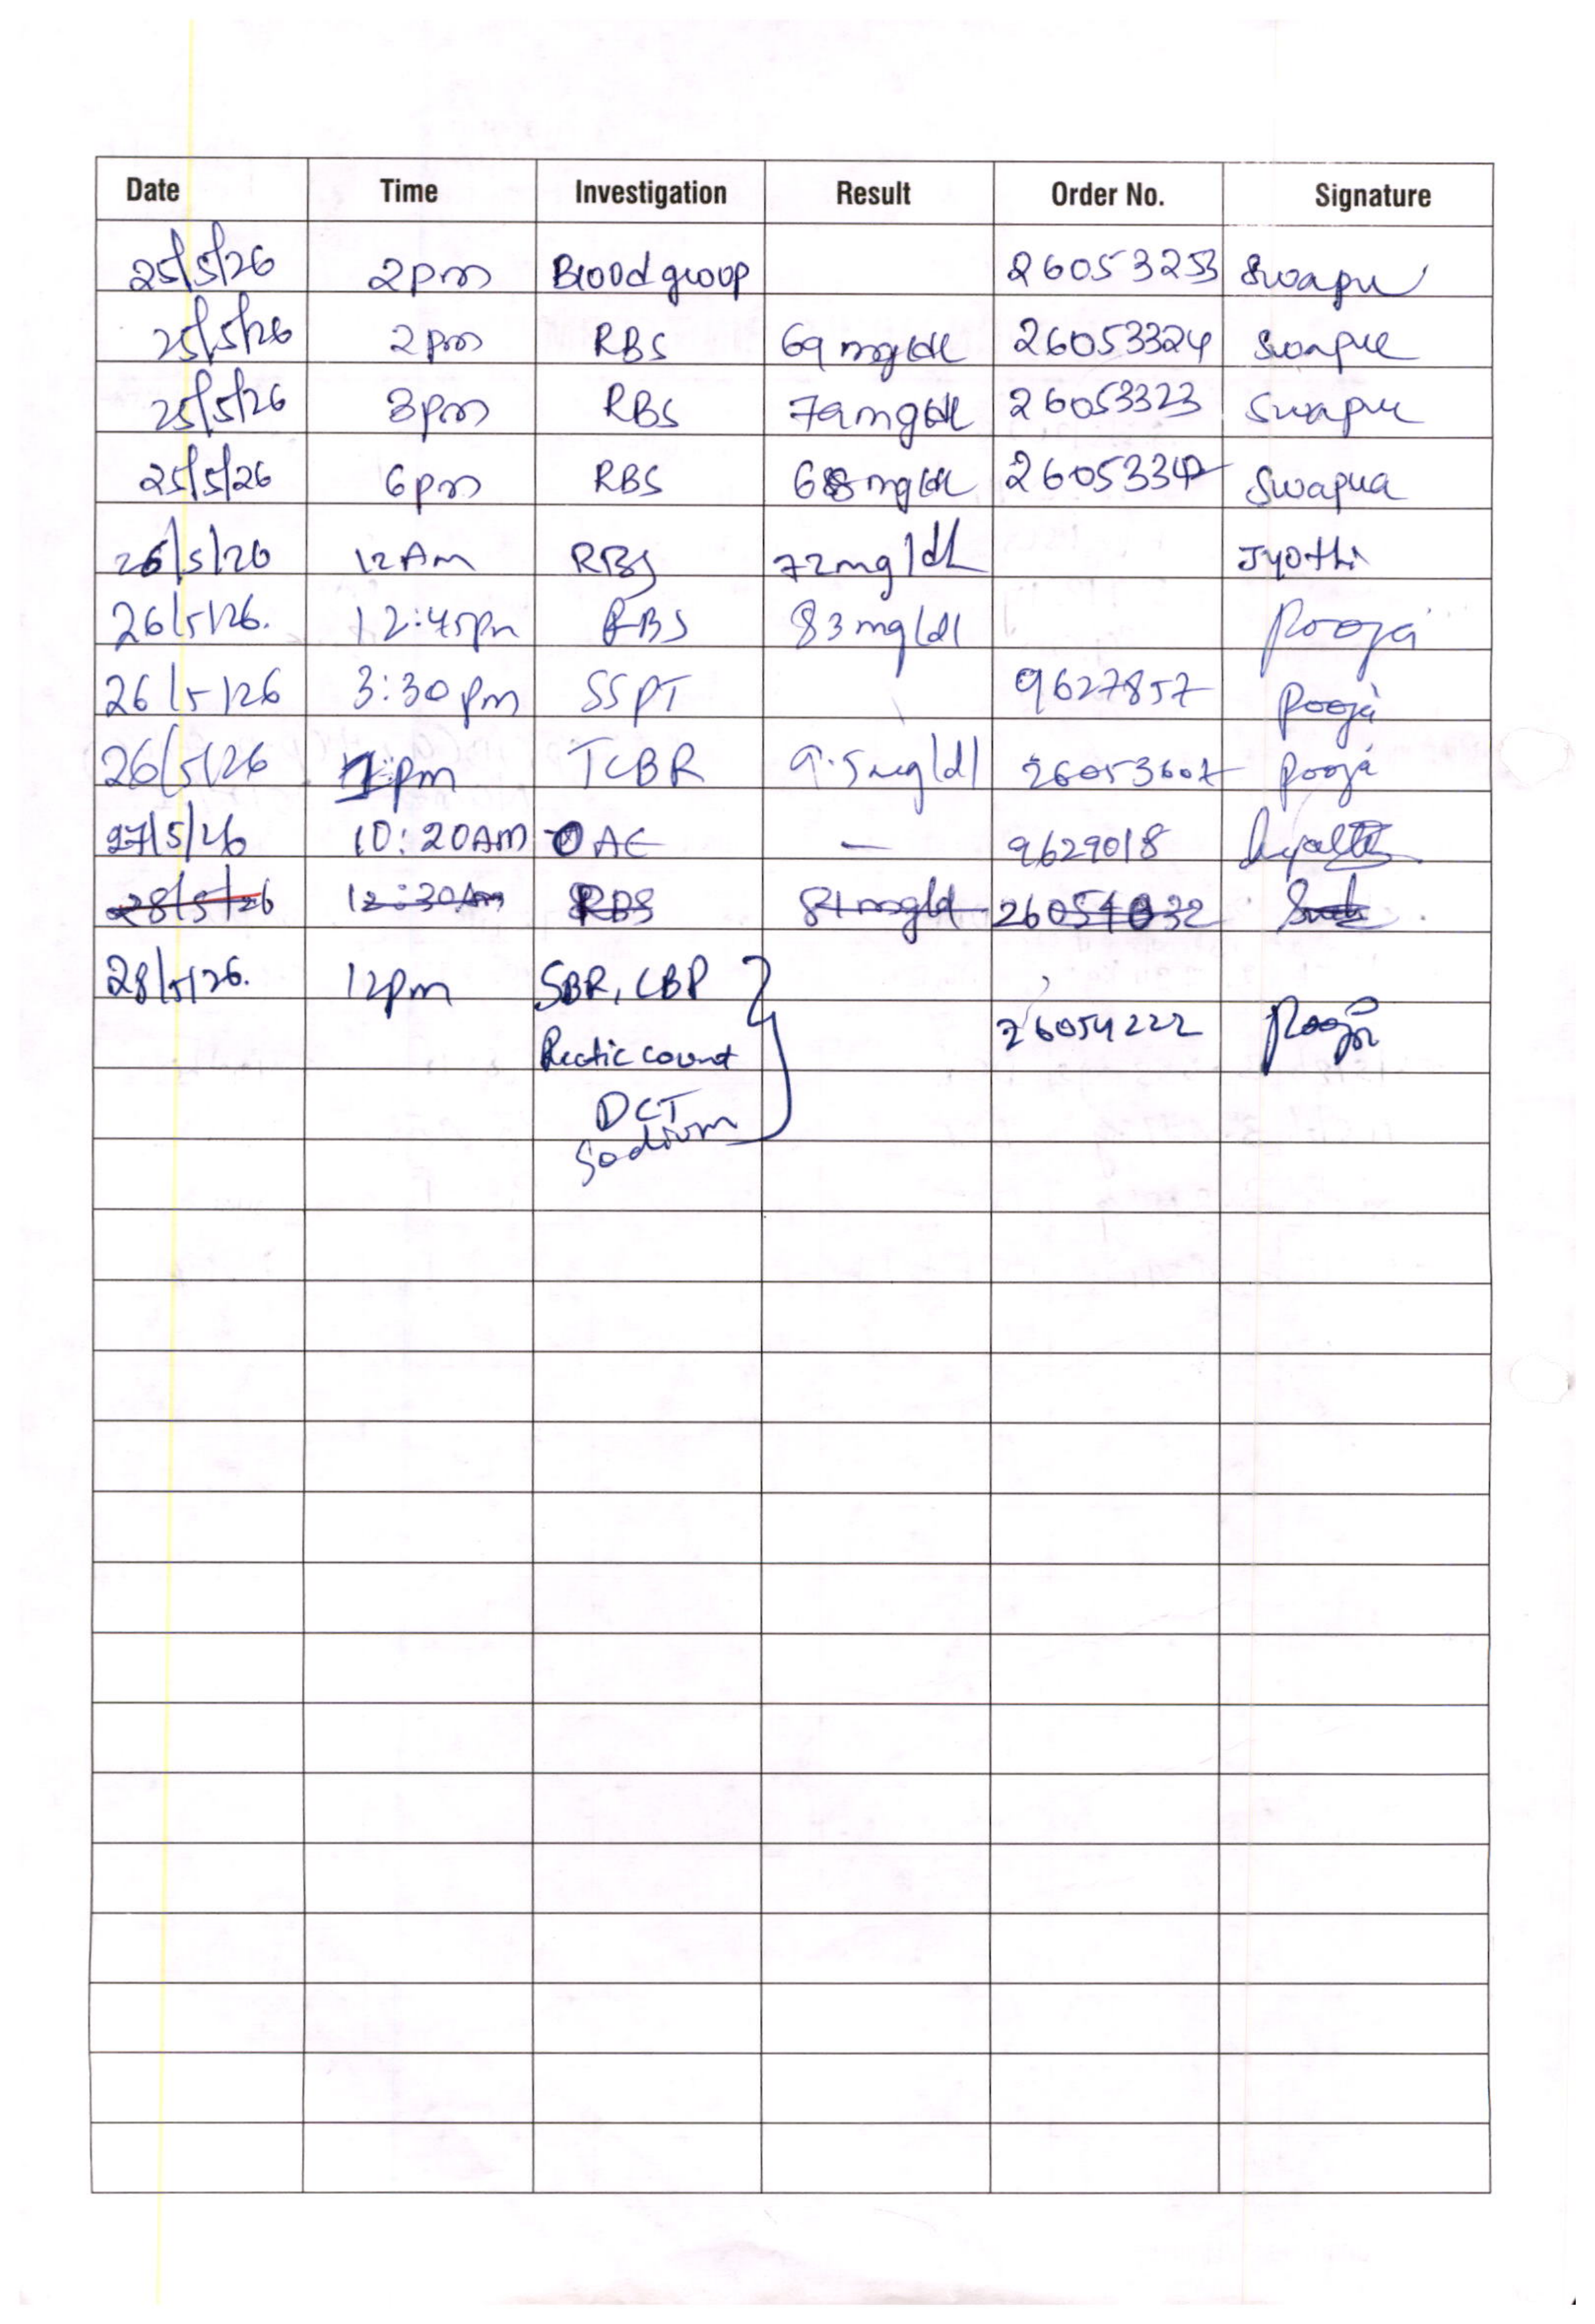 Date Time Investigation Result Order No. Signature
25/5/26 2pm Blood group 26053253 Swapna
25/5/26 2pm RBS 69 mg/dl 26053324 Swapna
25/5/26 3pm RBS 79mg/dl 26053323 Swapna
25/5/26 6pm RBS 68mg/dl 2605334 Swapna
26/5/26 12Am RBS 72mg/dL Jyothi
26/5/26. 12:45pm RBS 83mg/dl Pooja
26/5/26 3:30pm SSPT 9627857 Pooja
26/5/26 1pm TCBR 9.5mg/dl 26053607 Pooja
27/5/26 10:20AM OAE — 9629018
28/5/26 12:30Am RBS 81mg/d 26054032
28/5/26. 12pm SBR, CBP
26054222 Pooja
Rectic count
DCT
Sodium